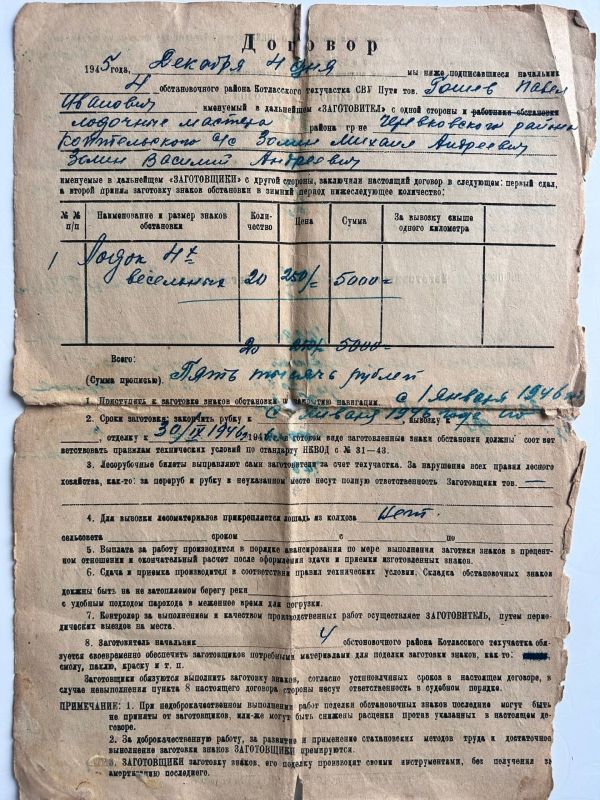 Договор
1945 года, Декабря 4 дня мы ниже подписавшиеся начальник
4 обстановочного района Котласского техучастка СВУ Пути тов. Павел
Иванович именуемый в дальнейшем „ЗАГОТОВИТЕЛ" с одной стороны и работники обстановки
лодочные мастера района гр-не Черевковского района
с/с Золин Михаил Андреевич
Золин Василий Андреевич
именуемые в дальнейшем „ЗАГОТОВЩИКИ" с другой стороны, заключили настоящий договор в следующем: первый сдал,
а второй принял заготовку знаков обстановки в зимний период нижеследующее количество:
№ № п/п Наименование и размер знаков обстановки Коли-чество Цена Сумма За вывозку свыше одного километра
1 Лодок 4х
весельных 20 250/- 5000=
Всего: 20 250/- 5000=
(Сумма прописью). Пять тысячь рублей
1. Приступить к заготовке знаков обстановки с 1 января 1946
2. Сроки заготовки: закончить рубку к с 1 января 1946 года по вывозку к
, отделку к 30/IV 1946г. 194 г. готовом виде заготовленные знаки обстановки должны соот вет
ветствовать правилам технических условий по стандарту НКВОД с № 31—43.
3. Лесорубочные билеты выправляют сами заготовители за счет техучастка. За нарушение всех правил лесного
хозяйства, как-то: за переруб и рубку в неуказанном месте несут полную ответственность Заготовщики тов. —
4. Для вывозки лесоматериалов прикрепляется лошадь из колхоза нет.
сельсовета сроком с по
5. Выплата за работу производится в порядке авансирования по мере выполнения заготвки знаков в процент-
ном отношении и окончательный расчет после оформления здачи и приемки изготовленных знаков.
6. Сдача и приемка производится в соответствии правил технических условии. Складка обстановочных знаков
должны быть на не затопляемом берегу реки
с удобным подходом парохода в меженное время для погрузки.
7. Контролер за выполнением и качеством производственных работ осуществляет ЗАГОТОВИТЕЛЬ, путем перио-
дических выездов на места.
8. Заготовитель начальник 4 обстоновочного района Котласского техучастка обя-
зуется своевременно обеспечить заготовщиков потребными материалами для поделки заготовки знаков, как то:
смолу, паклю, краску и т. п.
Заготовщики обязуются выполнить заготовку знаков, согласно устновлнчых сроков в настоящем договоре, в
случае невыполнения пункта 8 настоящего договора стороны несут ответственность в судебном порядке.
ПРИМЕЧАНИЕ: 1. При недоброкачественном выполнении работ поделки обстановочных знаков последние могут быть
не приняты от заготовщиков, или-же могут быть снижены расценки против указанных в настоящем до-
говоре.
2. За доброкачественную работу, за развитие и применение стахановских методов труда и достаточное
выполнение заготовки знаков ЗАГОТОВЩИКИ премируются.
3. ЗАГОТОВЩИКИ заготовку знаков, его поделку производят своими инструментами, без получения за
амортизацию последнего.